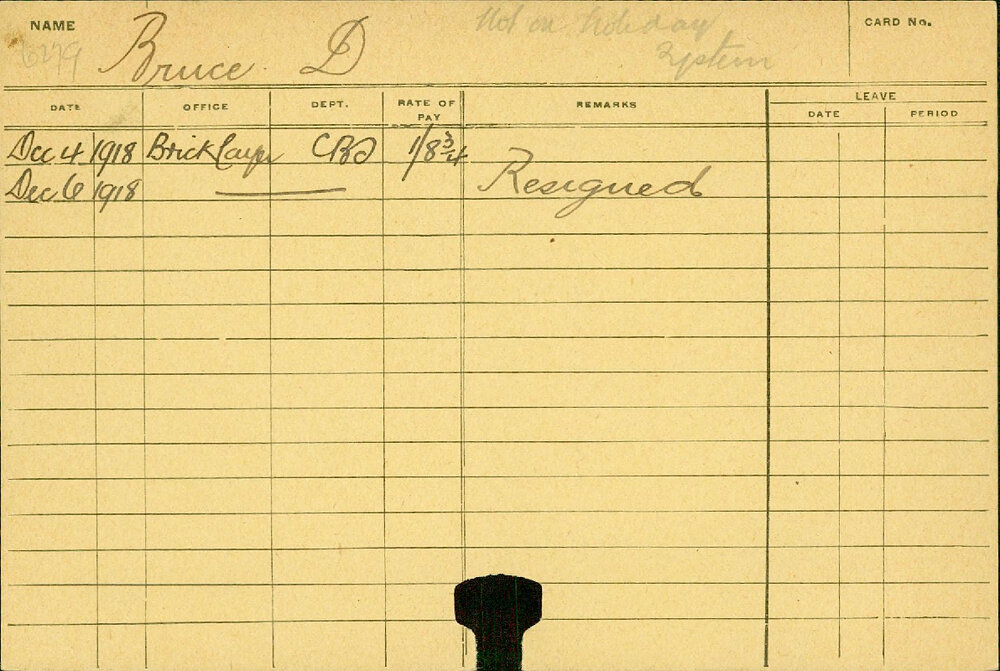 NAME Bruce. D Not on Holiday CARD No.
6279 System
DATE OFFICE DEPT. RATE OF PAY REMARKS LEAVE
DATE PERIOD
Dec 4 1918 Bricklayer CBD 1/8 3/4
Dec 6 1918 Resigned